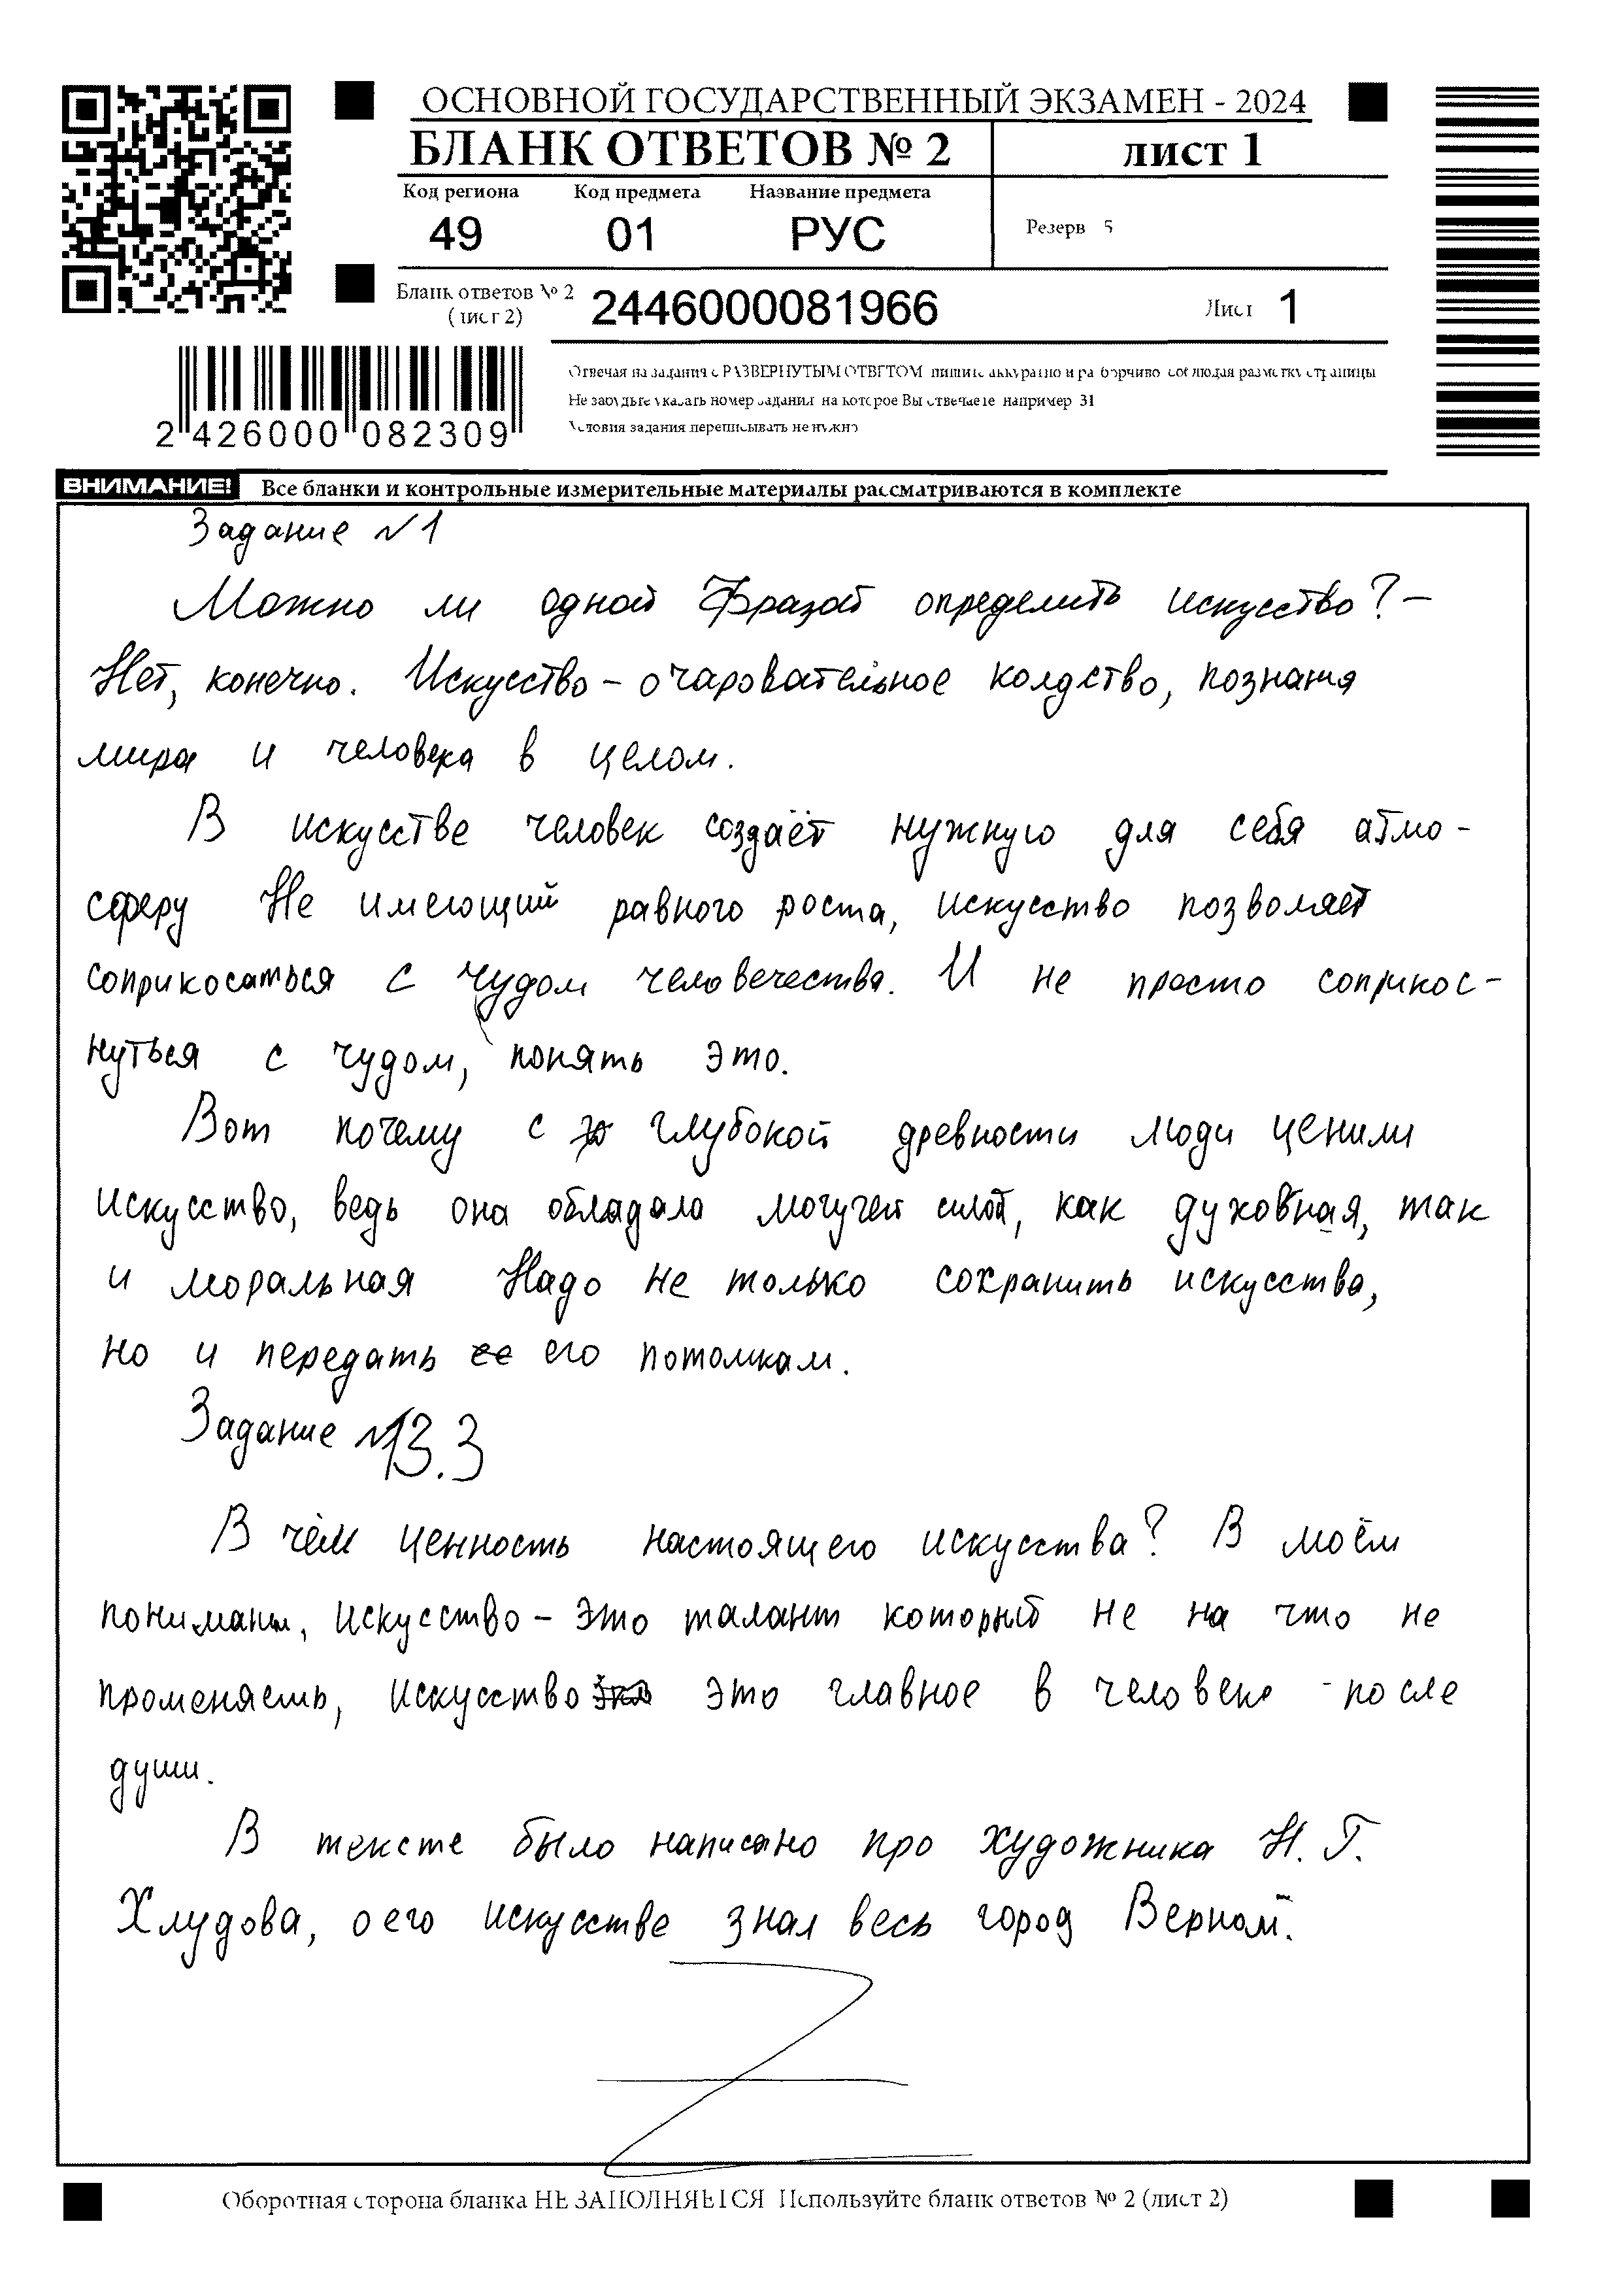 ОСНОВНОЙ ГОСУДАРСТВЕННЫЙ ЭКЗАМЕН - 2024
БЛАНК ОТВЕТОВ № 2 лист 1
Код региона Код предмета Название предмета
49 01 РУС
Резерв 5
Бланк ответов № 2 (лист 2) 2446000081966 Лист 1
Отвечая на задания с РАЗВЕРНУТЫМ ОТВЕТОМ пишите аккуратно и разборчиво соблюдая разметку страницы
Не забудьте указать номер задания на которое Вы отвечаете например 31
Условия задания переписывать не нужно
2 426000 082309
ВНИМАНИЕ! Все бланки и контрольные измерительные материалы рассматриваются в комплекте
Задание №1
Можно ли одной фразой определить искусство? –
Нет, конечно. Искусство – очаровательное колдство, познания
мира и человека в целом.
В искусстве человек создаёт нужную для себя атмо-
сферу Не имеющий равного роста, искусство позволяет
соприкосаться с чудом человечества. И не просто соприкос-
нуться с чудом, понять это.
Вот почему с глубокой древности люди ценили
искусство, ведь она обладала могучей силой, как духовная, так
и моральная Надо не только сохранить искусство,
но и передать его потомкам.
Задание №13.3
В чём ценность настоящего искусства? В моём
понимании, искусство – это талант который не на что не
променяешь, искусство это главное в человеке после
души.
В тексте было написано про художника Н. Г.
Хлудова, о его искусстве знал весь город Верной.
Оборотная сторона бланка НЕ ЗАПОЛНЯЕТСЯ Используйте бланк ответов № 2 (лист 2)